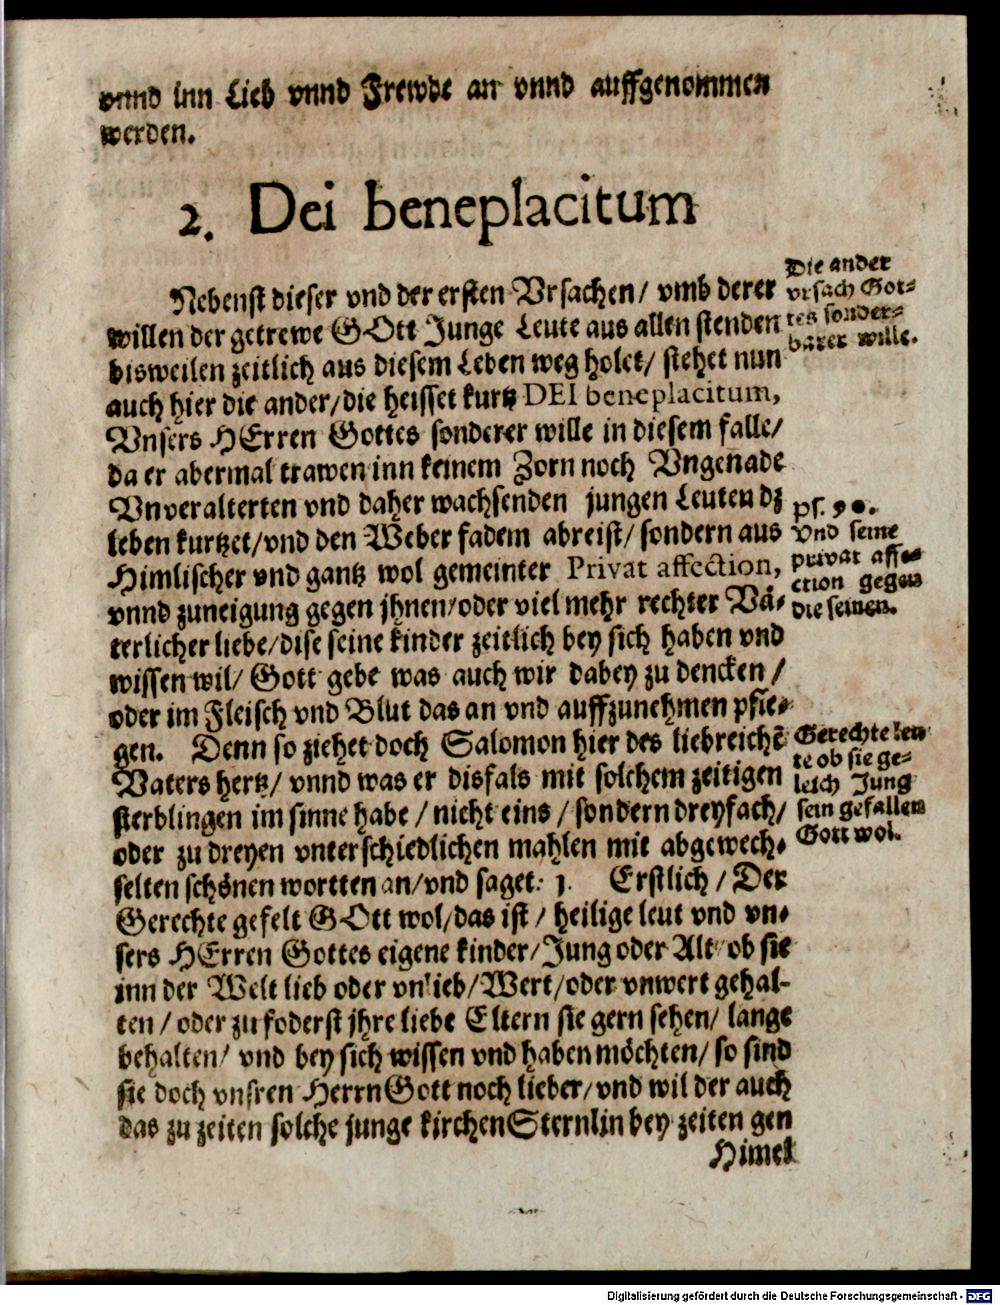 vnnd inn Lieb vnnd Frewde an vnnd auffgenommen
werden.
2. Dei beneplacitum
Nebenst dieser vnd der ersten Vrsachen/ vmb derer
willen der getrewe GOtt Junge Leute aus allen stenden
bisweilen zeitlich aus diesem Leben weg holet/ stehet nun
auch hier die ander/die heisset kurtz DEI beneplacitum,
Vnsers HErren Gottes sonderer wille in diesem falle/
da er abermal trawen inn keinem Zorn noch Vngenade
Vnveralterten vnd daher wachsenden jungen Leuten dz
leben kurtzet/vnd den Weber fadem abreist/ sondern aus
Himlischer vnd gantz wol gemeinter Privat affection,
vnnd zuneigung gegen jhnen/oder viel mehr rechter Vä-
terlicher liebe/dise seine kinder zeitlich bey sich haben vnd
wissen wil/ Gott gebe was auch wir dabey zu dencken /
oder im Fleisch vnd Blut das an vnd auffzunehmen pfle-
gen. Denn so ziehet doch Salomon hier des liebreichē
Vaters hertz/ vnnd was er disfals mit solchem zeitigen
sterblingen im sinne habe / nicht eins / sondern dreyfach/
oder zu dreyen vnterschiedlichen mahlen mit abgewech-
selten schönen wortten an/vnd saget: 1. Erstlich / Der
Gerechte gefelt GOtt wol/das ist / heilige leut vnd vn-
sers HErren Gottes eigene kinder/Jung oder Alt ob sie
inn der Welt lieb oder vnlieb/Wert/oder vnwert gehal-
ten / oder zu foderst jhre liebe Eltern sie gern sehen/ lange
behalten/ vnd bey sich wissen vnd haben möchten/ so sind
sie doch vnsren Herrn Gott noch lieber/vnd wil der auch
das zu zeiten solche junge kirchen Sternlin bey zeiten gen
Himel
Die ander
vrsach Got-
tes sonder-
barer wille.
ps. 90.
Vnd seine
privat affe-
ction gegen
die seinen.
Gerechte leu
te ob sie ge-
leich Jung
sein gefallen
Gott wol.
Digitalisierung gefördert durch die Deutsche Forschungsgemeinschaft - DFG